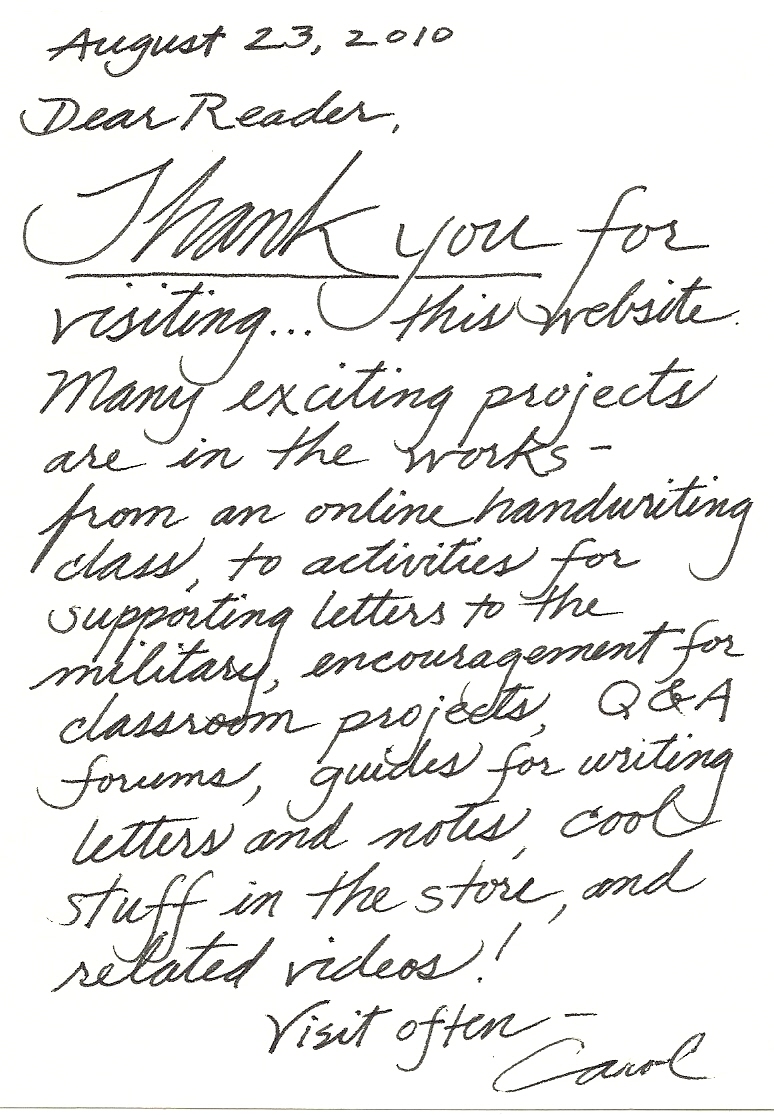 August 23, 2010
Dear Reader,
Thank you for
visiting... this website.
Many exciting projects
are in the works -
from an online handwriting
class, to activities for
supporting letters to the
military, encouragement for
classroom projects, Q&A
forums, guides for writing
letters and notes, cool
stuff in the store, and
related videos!
Visit often -
Carol